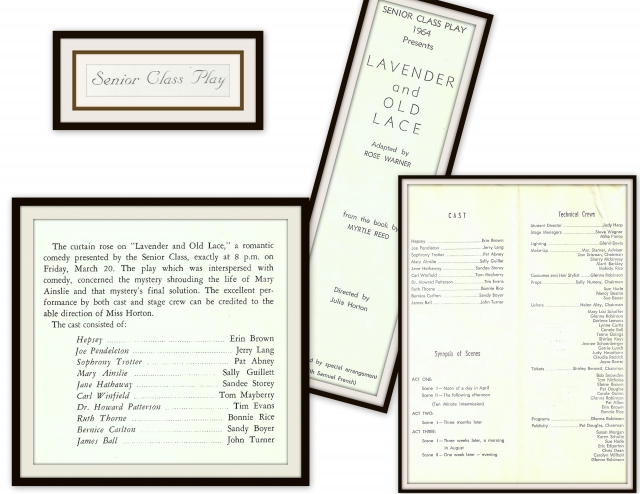 Senior Class Play
SENIOR CLASS PLAY
1964
Presents
LAVENDER
and
OLD
LACE
Adapted by
ROSE WARNER
from the book by
MYRTLE REED
Directed by
Julia Horton
by special arrangement
Samuel French)
The curtain rose on "Lavender and Old Lace," a romantic
comedy presented by the Senior Class, exactly at 8 p.m. on
Friday, March 20. The play which was interspersed with
comedy, concerned the mystery shrouding the life of Mary
Ainslie and that mystery's final solution. The excellent per-
formance by both cast and stage crew can be credited to the
able direction of Miss Horton.
The cast consisted of:
Hepsey Erin Brown
Joe Pendleton Jerry Lang
Sophrony Trotter Pat Abney
Mary Ainslie Sally Guillett
Jane Hathaway Sandee Storey
Carl Winfield Tom Mayberry
Dr. Howard Patterson Tim Evans
Ruth Thorne Bonnie Rice
Bernice Carlton Sandy Boyer
James Ball John Turner
CAST
Hepsey Erin Brown
Joe Pendleton Jerry Lang
Sophrony Trotter Pat Abney
Mary Ainslie Sally Guillet
Jane Hathaway Sandee Storey
Carl Winfield Tom Mayberry
Dr. Howard Patterson Tim Evans
Ruth Thorne Bonnie Rice
Bernice Sandy Boyer
James Ball John Turner
Synopsis of Scenes
ACT ONE:
Scene I—Noon of a day in April
Scene II—The following afternoon
(Ten Minute Intermission)
ACT TWO:
Scene I—Three months later
ACT THREE:
Scene I—Three weeks later, a morning
in August
Scene II—One week later — evening
Technical Crews
Student Director Judy Harp
Stage Managers Steve Wagner
Mike
Lighting Glenn Davis
Make-Up Mrs. Starnes, Advisor
Chairman
Sherry McKinney
Melody Rice
Costumes and Hair Stylist Glenna Robinson
Props Sally Nunery, Chairman
Sue Hade
Nancy
Sue Baker
Ushers Helen Alley, Chairman
Mary Lou Schaffer
Glenna Robinson
Darlene Lemons
Lynne Curtis
Carole Bell
Shirley Keys
Carole Lynch
Judy
Joyce
Tickets Shirley Bennett, Chairman
Bob Snowden
Tom Nicholas
Elaine Brown
Pat Douglas
Carole Quinn
Glenna Robinson
Pat Allen
Erin Brown
Bonnie Rice
Programs Glenna Robinson
Publicity Pat Douglas, Chairman
Susan Morgan
Karen Schultz
Sue Hade
Eric Edgerton
Chris Dean
Carolyn
Glenna Robinson